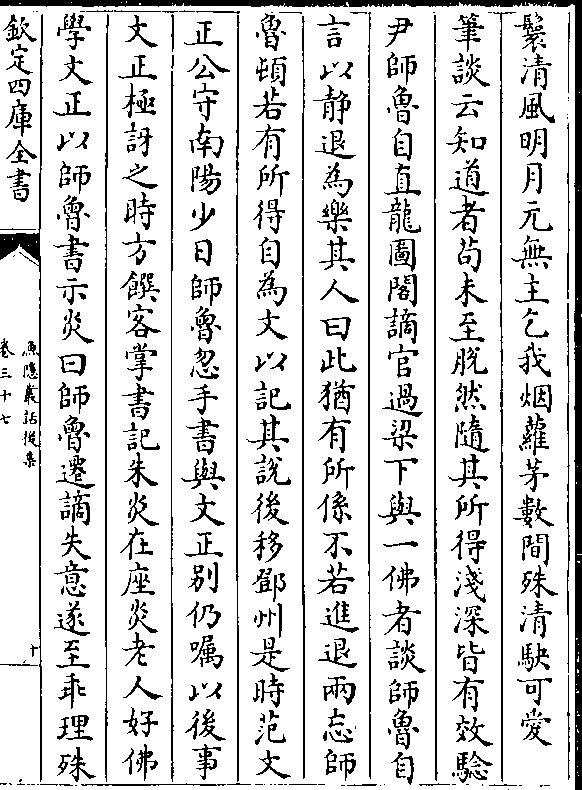 鬟清風明月元無主乞我烟蘿茅數間殊清駃可愛
筆談云知道者苟未至脫然隨其所得淺深皆有效驗
尹師魯自直龍圖閣謫官過梁下與一佛者談師魯自
言以静退為樂其人曰此猶有所係不若進退兩忘師
魯頓若有所得自為文以記其說後移鄧州是時范文
正公守南陽少日師魯忽手書與文正别仍囑以後事
文正極訝之時方饌客掌書記朱炎在座炎老人好佛
學文正以師魯書示炎曰師魯遷謫失意遂至乖理殊
欽定四庫全書
漁隠叢話後集
卷三十七
十